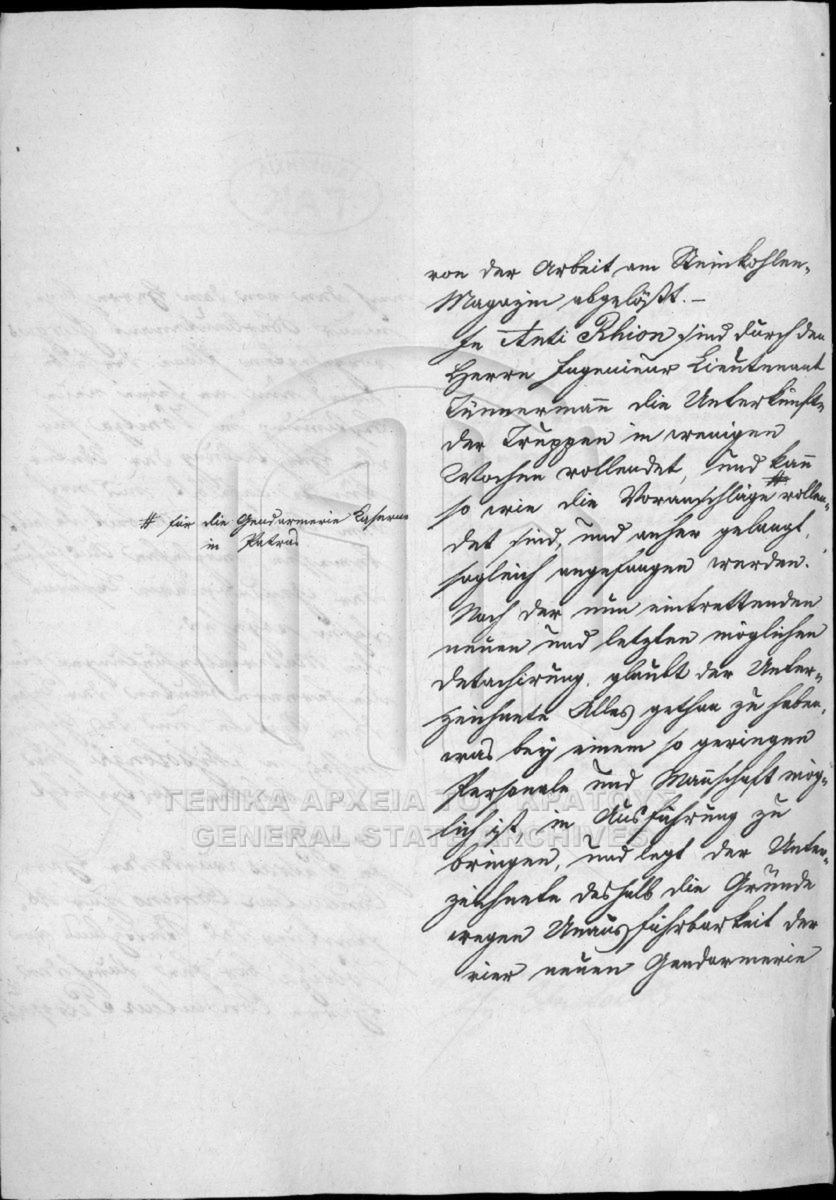 von der Arbeit am Steinkohlen-
Magazin abgelößt. –
In Anti Rhion sind durch den
Herrn Ingenieur Lieutenant
Tünnermañ die Unterkünfte
der Truppen in wenigen
Wochen vollendet, und kañ
so wie die Voranschläge # vollen-
det sind, und anher gelangt,
sogleich angefangen werden.
# für die Gendarmerie Kaserne
in Patras
Nach der nun eintrettenden
neuen und letzten möglichen
Detachirung, glaubt der Unter-
zeichnete Alles gethan zu haben,
was bey einem so geringen
Personale und Mañschaft mög-
lich ist, in Ausführung zu
bringen, und legt der Unter-
zeichnete deshalb die Gründe
wegen Unausführbarkeit der
vier neuen Gendarmerie
ΓΕΝΙΚΑ ΑΡΧΕΙΑ ΤΟΥ ΚΡΑΤΟΥΣ
GENERAL STATE ARCHIVES